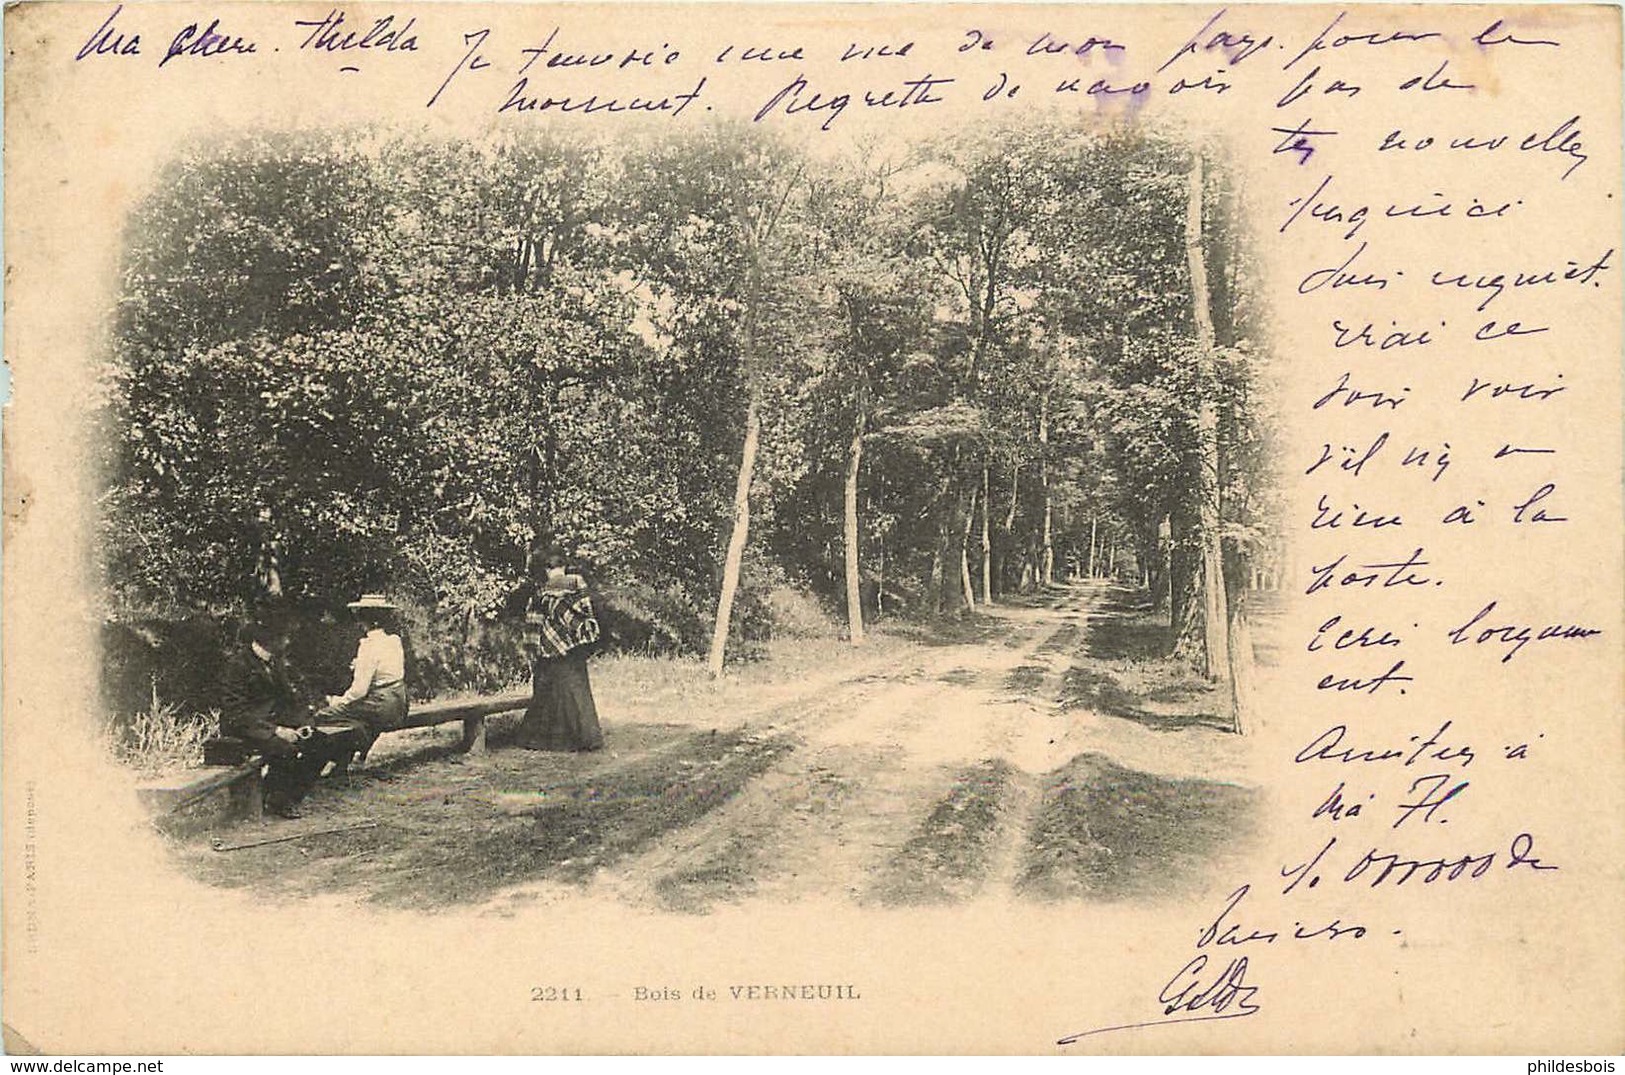 Ma chere. Thilda Je t'envoie une vue de mon pays. pour le
moment. Regrette de n'avoir pas de
tes nouvelles
jusqu'ici
suis inquiet.
irai ce
soir voir
s'il n'y a
rien à la
poste.
Ecris longuem
ent.
Amities à
Ma Th.
1.000000 de
baisers.
2211. - Bois de VERNEUIL
phildesbois